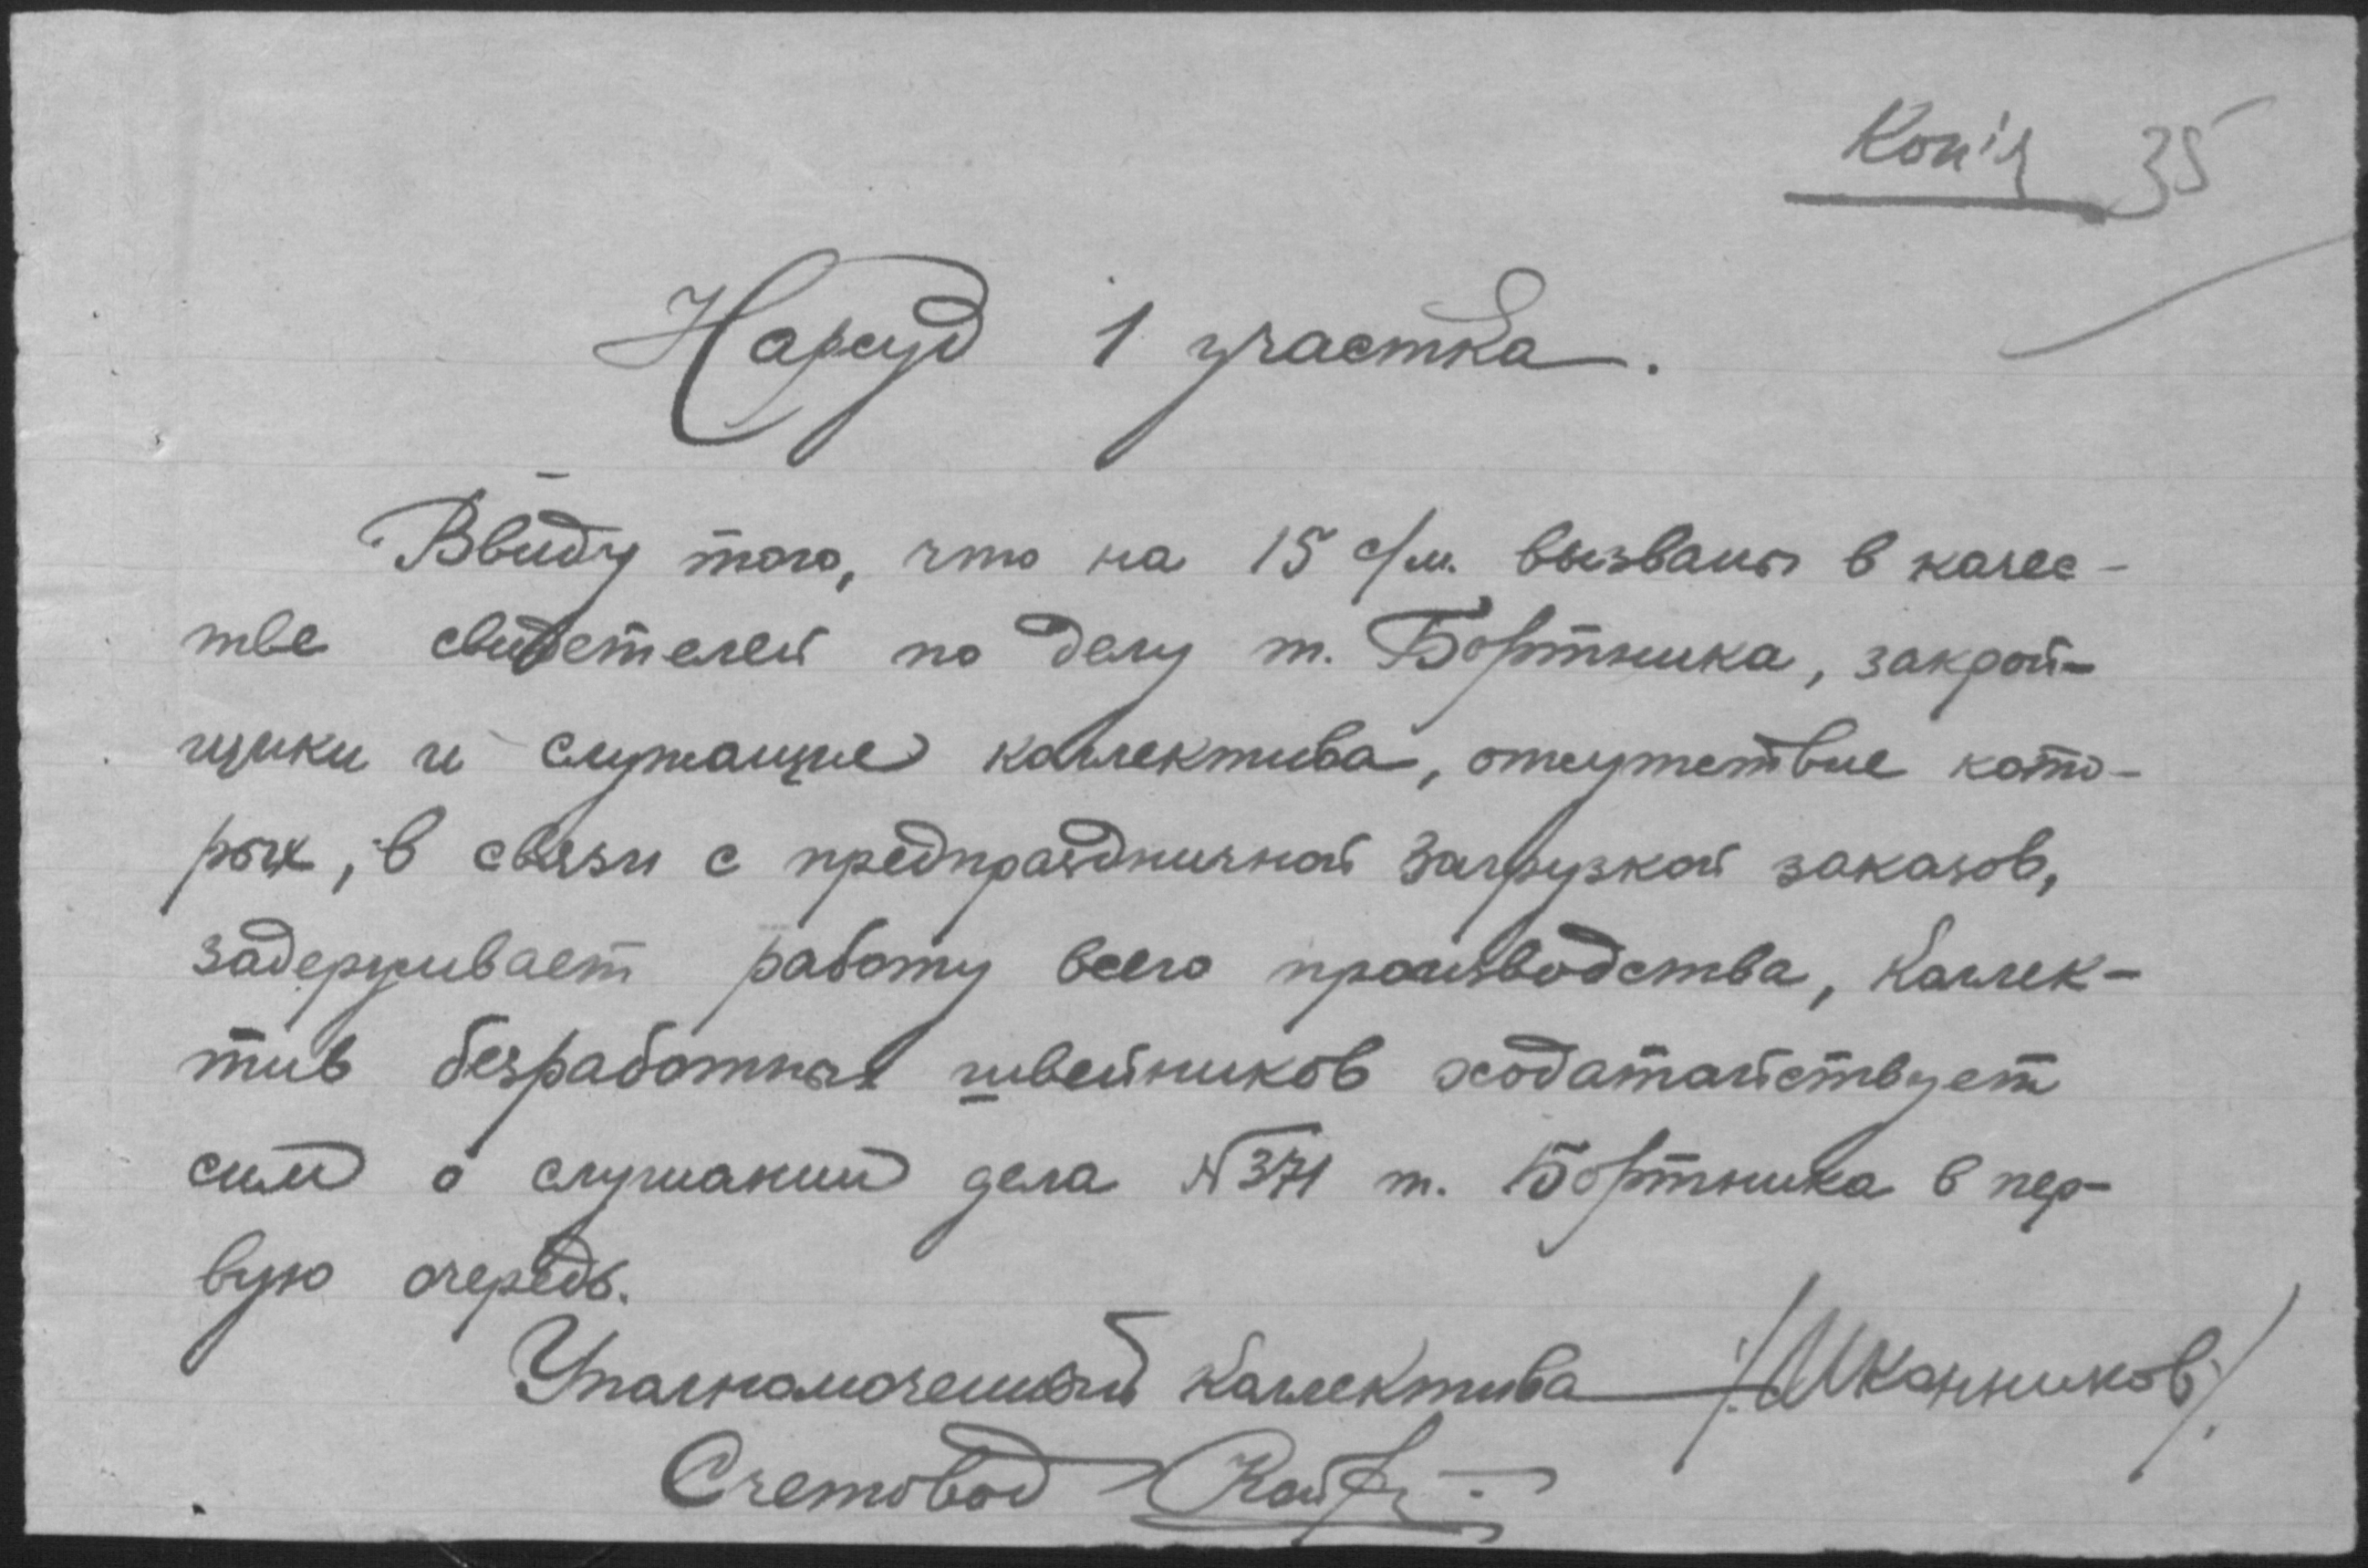 Копія 35
Нарсуд 1 участка.
Ввиду того, что на 15 с/м. вызваны в качес-
тве свидетелей по делу т. Бортника, закрой-
щики и служащие коллектива, отсутствие кото-
рых, в связи с предпраздничной загрузкой заказов,
задерживает работу всего производства, Коллек-
тив безработных швейников ходатайствует
сим о слушании дела №371 т. Бортника в пер-
вую очередь.
Уполномоченный Коллектива /Иканников/
Счетовод